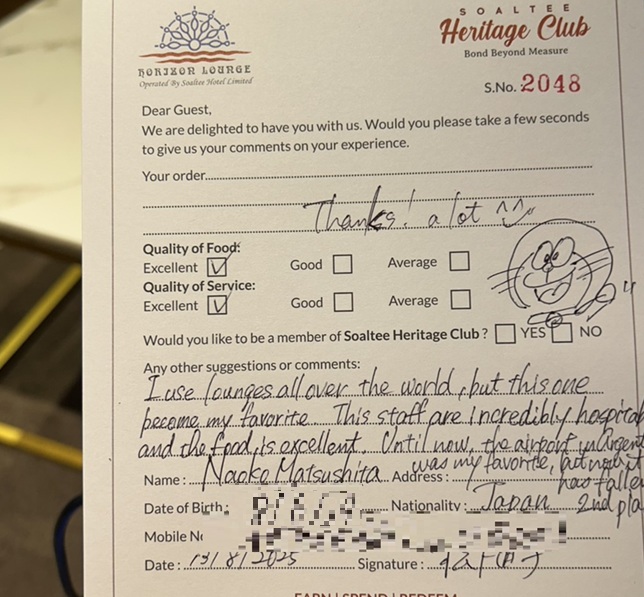 SOALTEE
Heritage Club
Bond Beyond Measure
HORIZON LOUNGE
Operated By Soaltee Hotel Limited
S.No. 2048
Dear Guest,
We are delighted to have you with us. Would you please take a few seconds
to give us your comments on your experience.
Your order
Thanks! a lot
Quality of Food:
Excellent Good Average
Quality of Service:
Excellent Good Average
Would you like to be a member of Soaltee Heritage Club? YES NO
Any other suggestions or comments:
I use lounges all over the world, but this one
become my favorite. This staff are incredibly hospital
and the food is excellent. Until now, the airport in Argent
was my favorite, but now it
has falle
2nd pla
Name: Naoko Matsushita Address:
Date of Birth: Nationality: Japan
Mobile N
Date: 13/8/2025 Signature:
EARN | SPEND | REDEEM